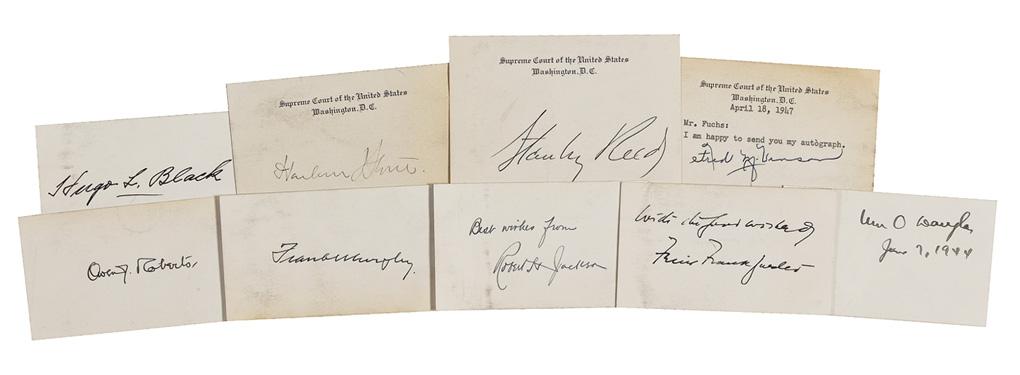 Hugo L. Black
Supreme Court of the United States
Washington, D.C.
Harlan F Stone.
Supreme Court of the United States
Washington, D.C.
Stanley Reed
Supreme Court of the United States
Washington, D.C.
April 18, 1947
Mr. Fuchs:
I am happy to send you my autograph.
Fred M. Vinson
Owen J. Roberts.
Frank Murphy.
Best wishes from
Robert H Jackson
With the good wishes of
Felix Frankfurter
Wm O Douglas
Jan 7, 1944